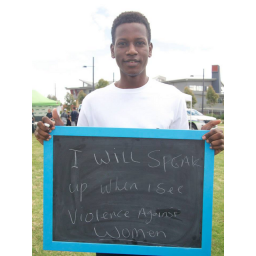 I Will Speak
up when i see
Violence Against
Women